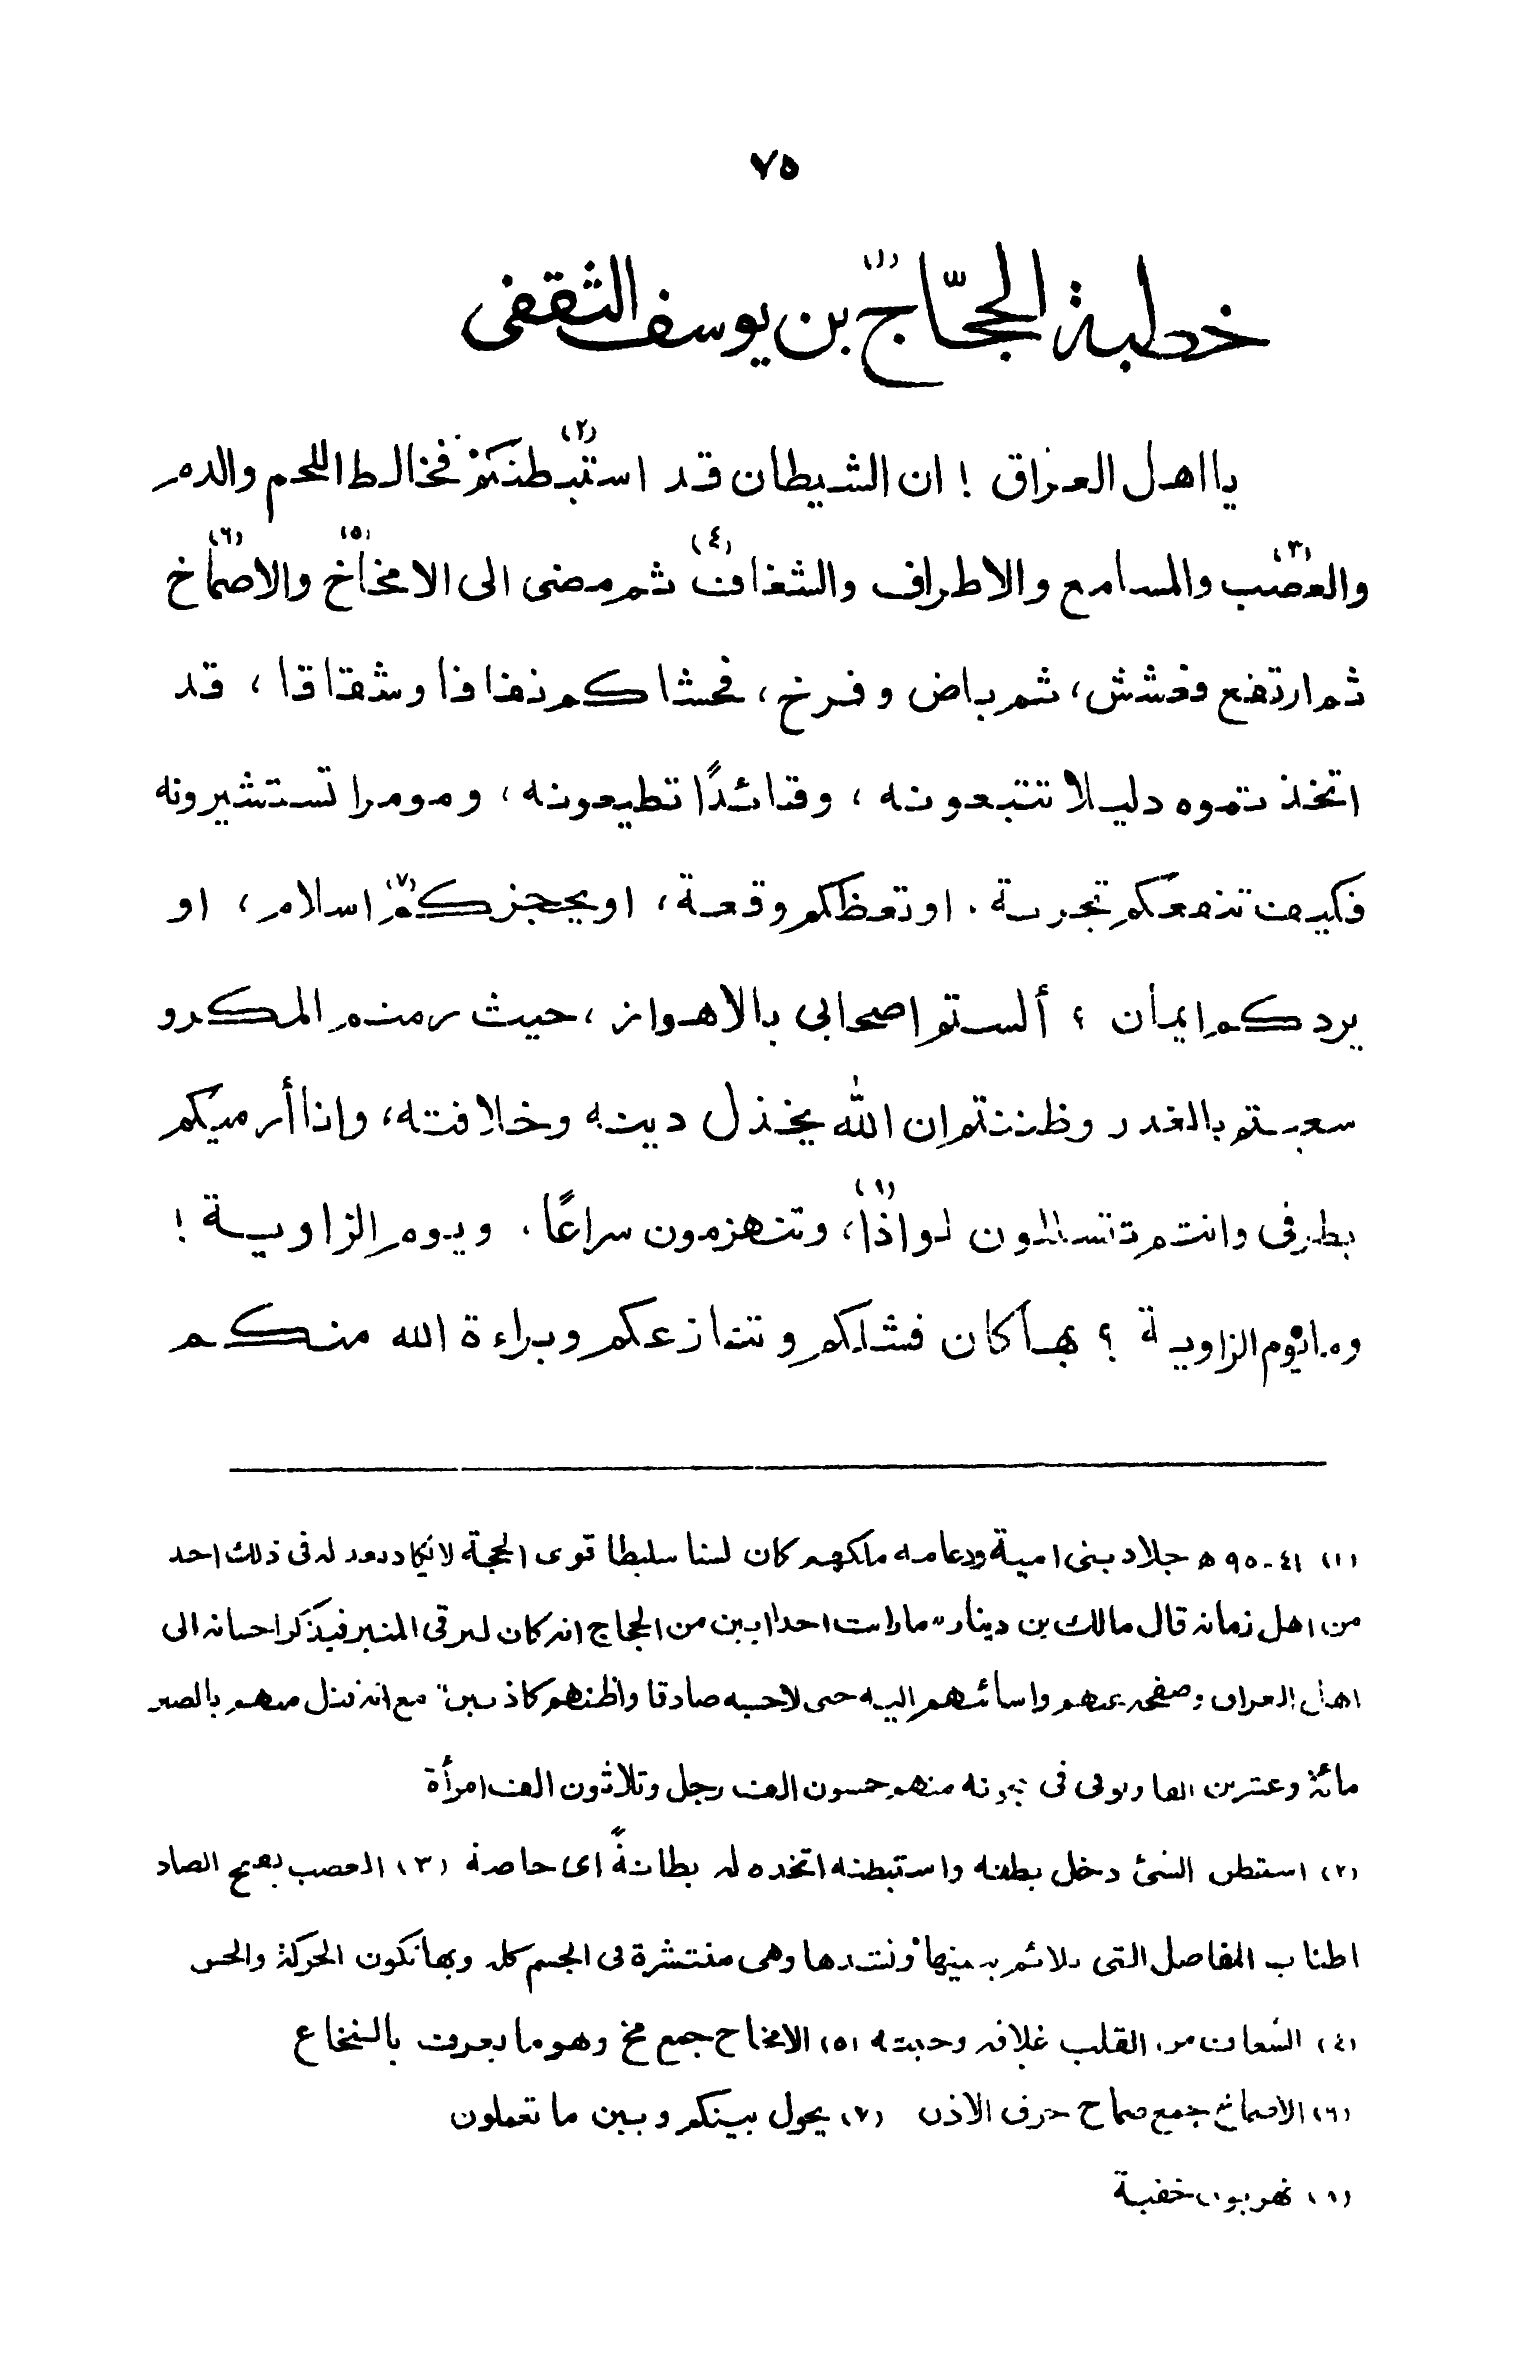 ٧٥
خطبة الحجّاج(١) بن يوسف الثقفى
يا اهل العراق ! ان الشيطان قد استبطنكم(٢) فخالط اللحم والدم
والعصب(٣) والمسامع والاطراف والشغاف(٤) ثم مضى الى الامخاخ(٥) والاصماخ(٦)
ثم ارتفع فعشش، ثم باض وفرخ، فحشاكم نفاقا وشقاقا، قد
اتخذتموه دليلا تتبعونه، وقائدًا تطيعونه، ومومرا تستشيرونه
فكيف تنفعكم تجربة . او تعظكم وقعة، او يحجزكم(٧) اسلام، او
يردكم ايمان ؟ ألستم اصحابى بالاهواز، حيث رمتم المكرو
سعيتم بالغدر وظننتم ان الله يخذل دينه وخلافته، وانا أرميكم
بطرفى وانتم تتسللون لواذا(١)، وتنهزمون سراعًا. ويوم الزاوية !
وما يوم الزاوية ؟ بها كان فشلكم وتنازعكم وبراءة الله منكم
(١) ٤١-٩٥ ه جلاد بنى امية ودعامة ملكهم كان لسنا سليطا قوى الحجة لا يكاد يعد له فى ذلك احد
من اهل زمانه قال مالك بن دينار "ما رايت احدا ابين من الحجاج انه كان ليرقى المنبر فيذكر احسانه الى
اهل العراق وصفحه عنهم واسائتهم اليه حتى لاحسبه صادقا واظنهم كاذبين" مع انه قتل منهم بالصبر
مائة وعشرين الفا وتوفى فى سجونه منهم خمسون الف رجل وثلاثون الف امرأة
(٢) استبطن الشئ دخل بطنه واستبطنه اتخذه له بطانةً اى خاصة (٣) العصب بفتح الصاد
اطناب المفاصل التى تلائم بينها وتشدها وهى منتشرة فى الجسم كله وبها تكون الحركة والحس
(٤) الشغاف من القلب غلافه وحبته (٥) الامخاخ جمع مخ وهو ما يعرف بالنخاع
(٦) الاصماخ جمع صماخ خرق الاذن (٧) يحول بينكم وبين ما تعملون
(١) تهربون خفية